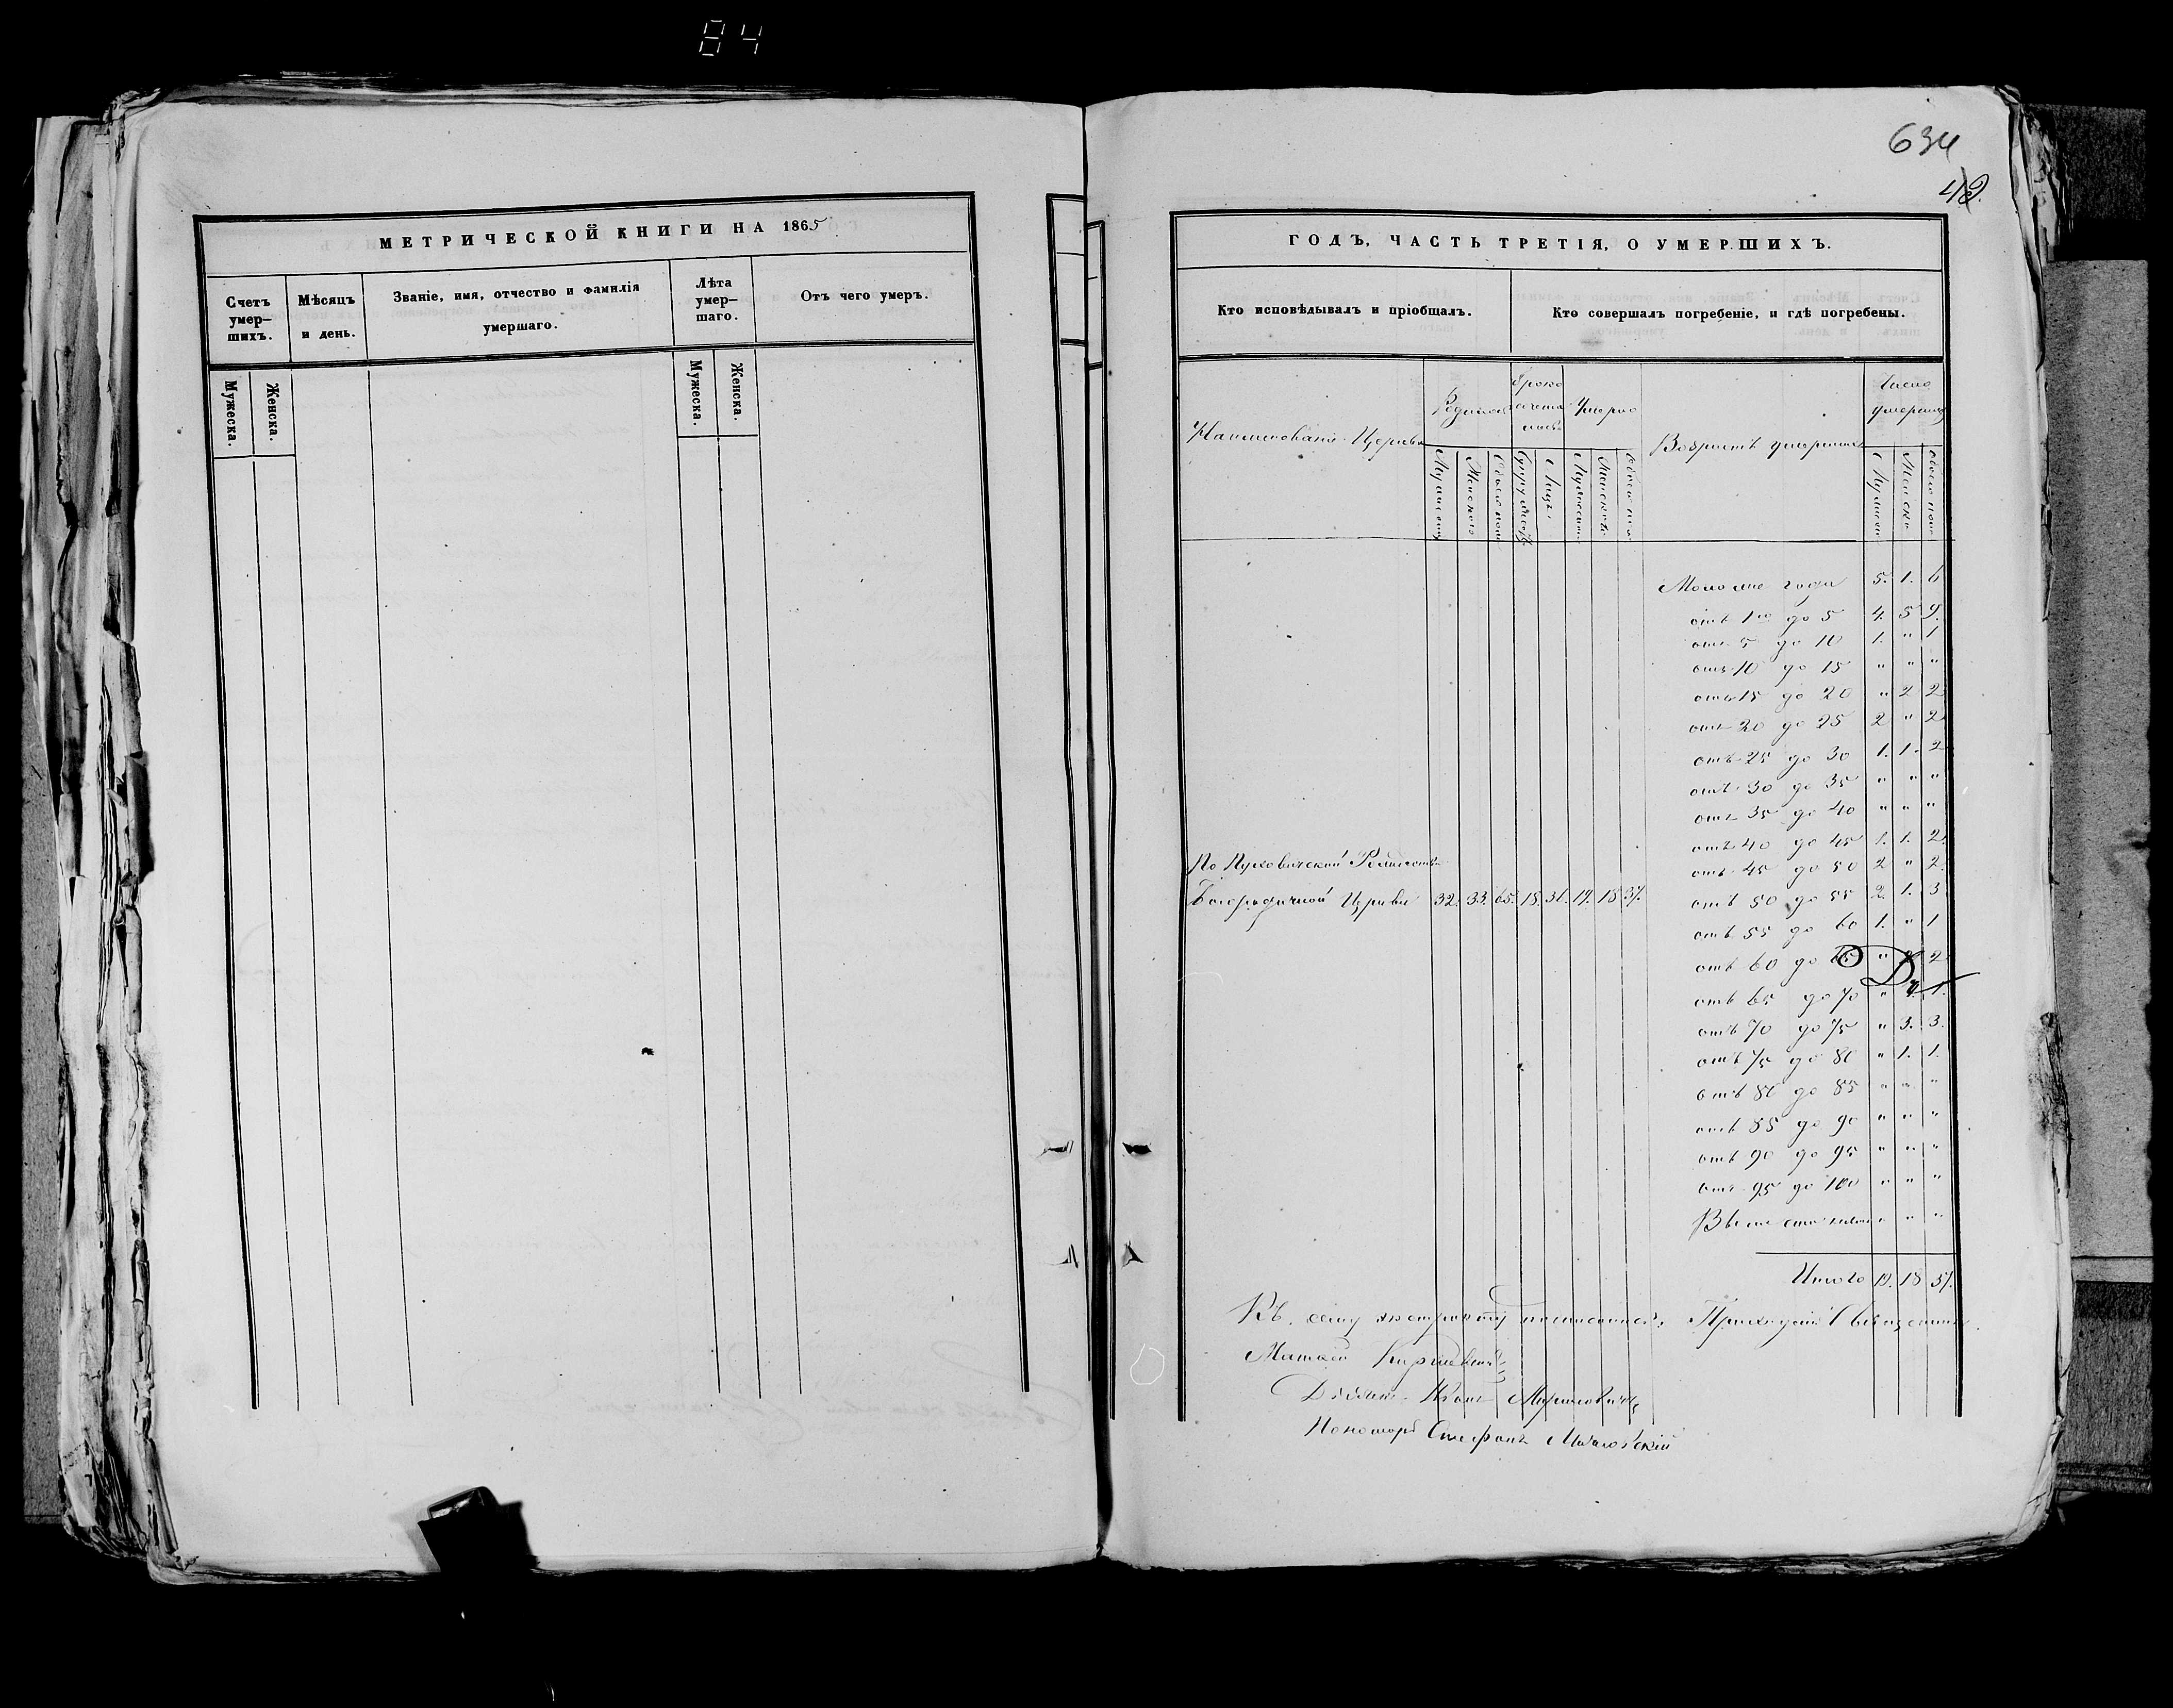 84
МЕТРИЧЕСКОЙ КНИГИ НА 1865
Счетъ умер-
шихъ.
Мѣсяцъ
и день.
Званіе, имя, отчество и фамилія
умершаго.
Лѣта
умер-
шаго.
Отъ чего умеръ.
Мужеска.
Женска.
Мужеска.
Женска.
634
ГОДЪ, ЧАСТЬ ТРЕТІЯ, О УМЕРШИХЪ.
Кто исповѣдывалъ и пріобщалъ.
Кто совершалъ погребеніе, и гдѣ погребены.
Число
Умерло
Возрастъ умершихъ
Моложе года 5. 1. 6
отъ 1го до 5 4. 5 9.
отъ 5 до 10 1. " 1
отъ 10 до 15 " " "
отъ 15 до 20 " 2 2
отъ 20 до 25 2 " 2
отъ 25 до 30 1. 1. 2
отъ 30 до 35 " " "
отъ 35 до 40 " " "
отъ 40 до 45 1. 1. 2.
По Пуховичской
отъ 45 до 50 2 " 2
Богородичной Церкви 32. 33. 65. 18. 36. 19. 18 37.
отъ 50 до 55 2. 1. 3
отъ 55 до 60 1. " 1
отъ 60 до 65 " 2
отъ 65 до 70 " 1.
отъ 70 до 75 " 3. 3.
отъ 75 до 80 " 1. 1.
отъ 80 до 85 " " "
отъ 85 до 90 " " "
отъ 90 до 95 " " "
отъ 95 до 100 " " "
Выше ста " " "
Итого 19. 18 37.
Къ сему экстракту
Матвей
Дьячекъ Иванъ
Пономарь Стефанъ